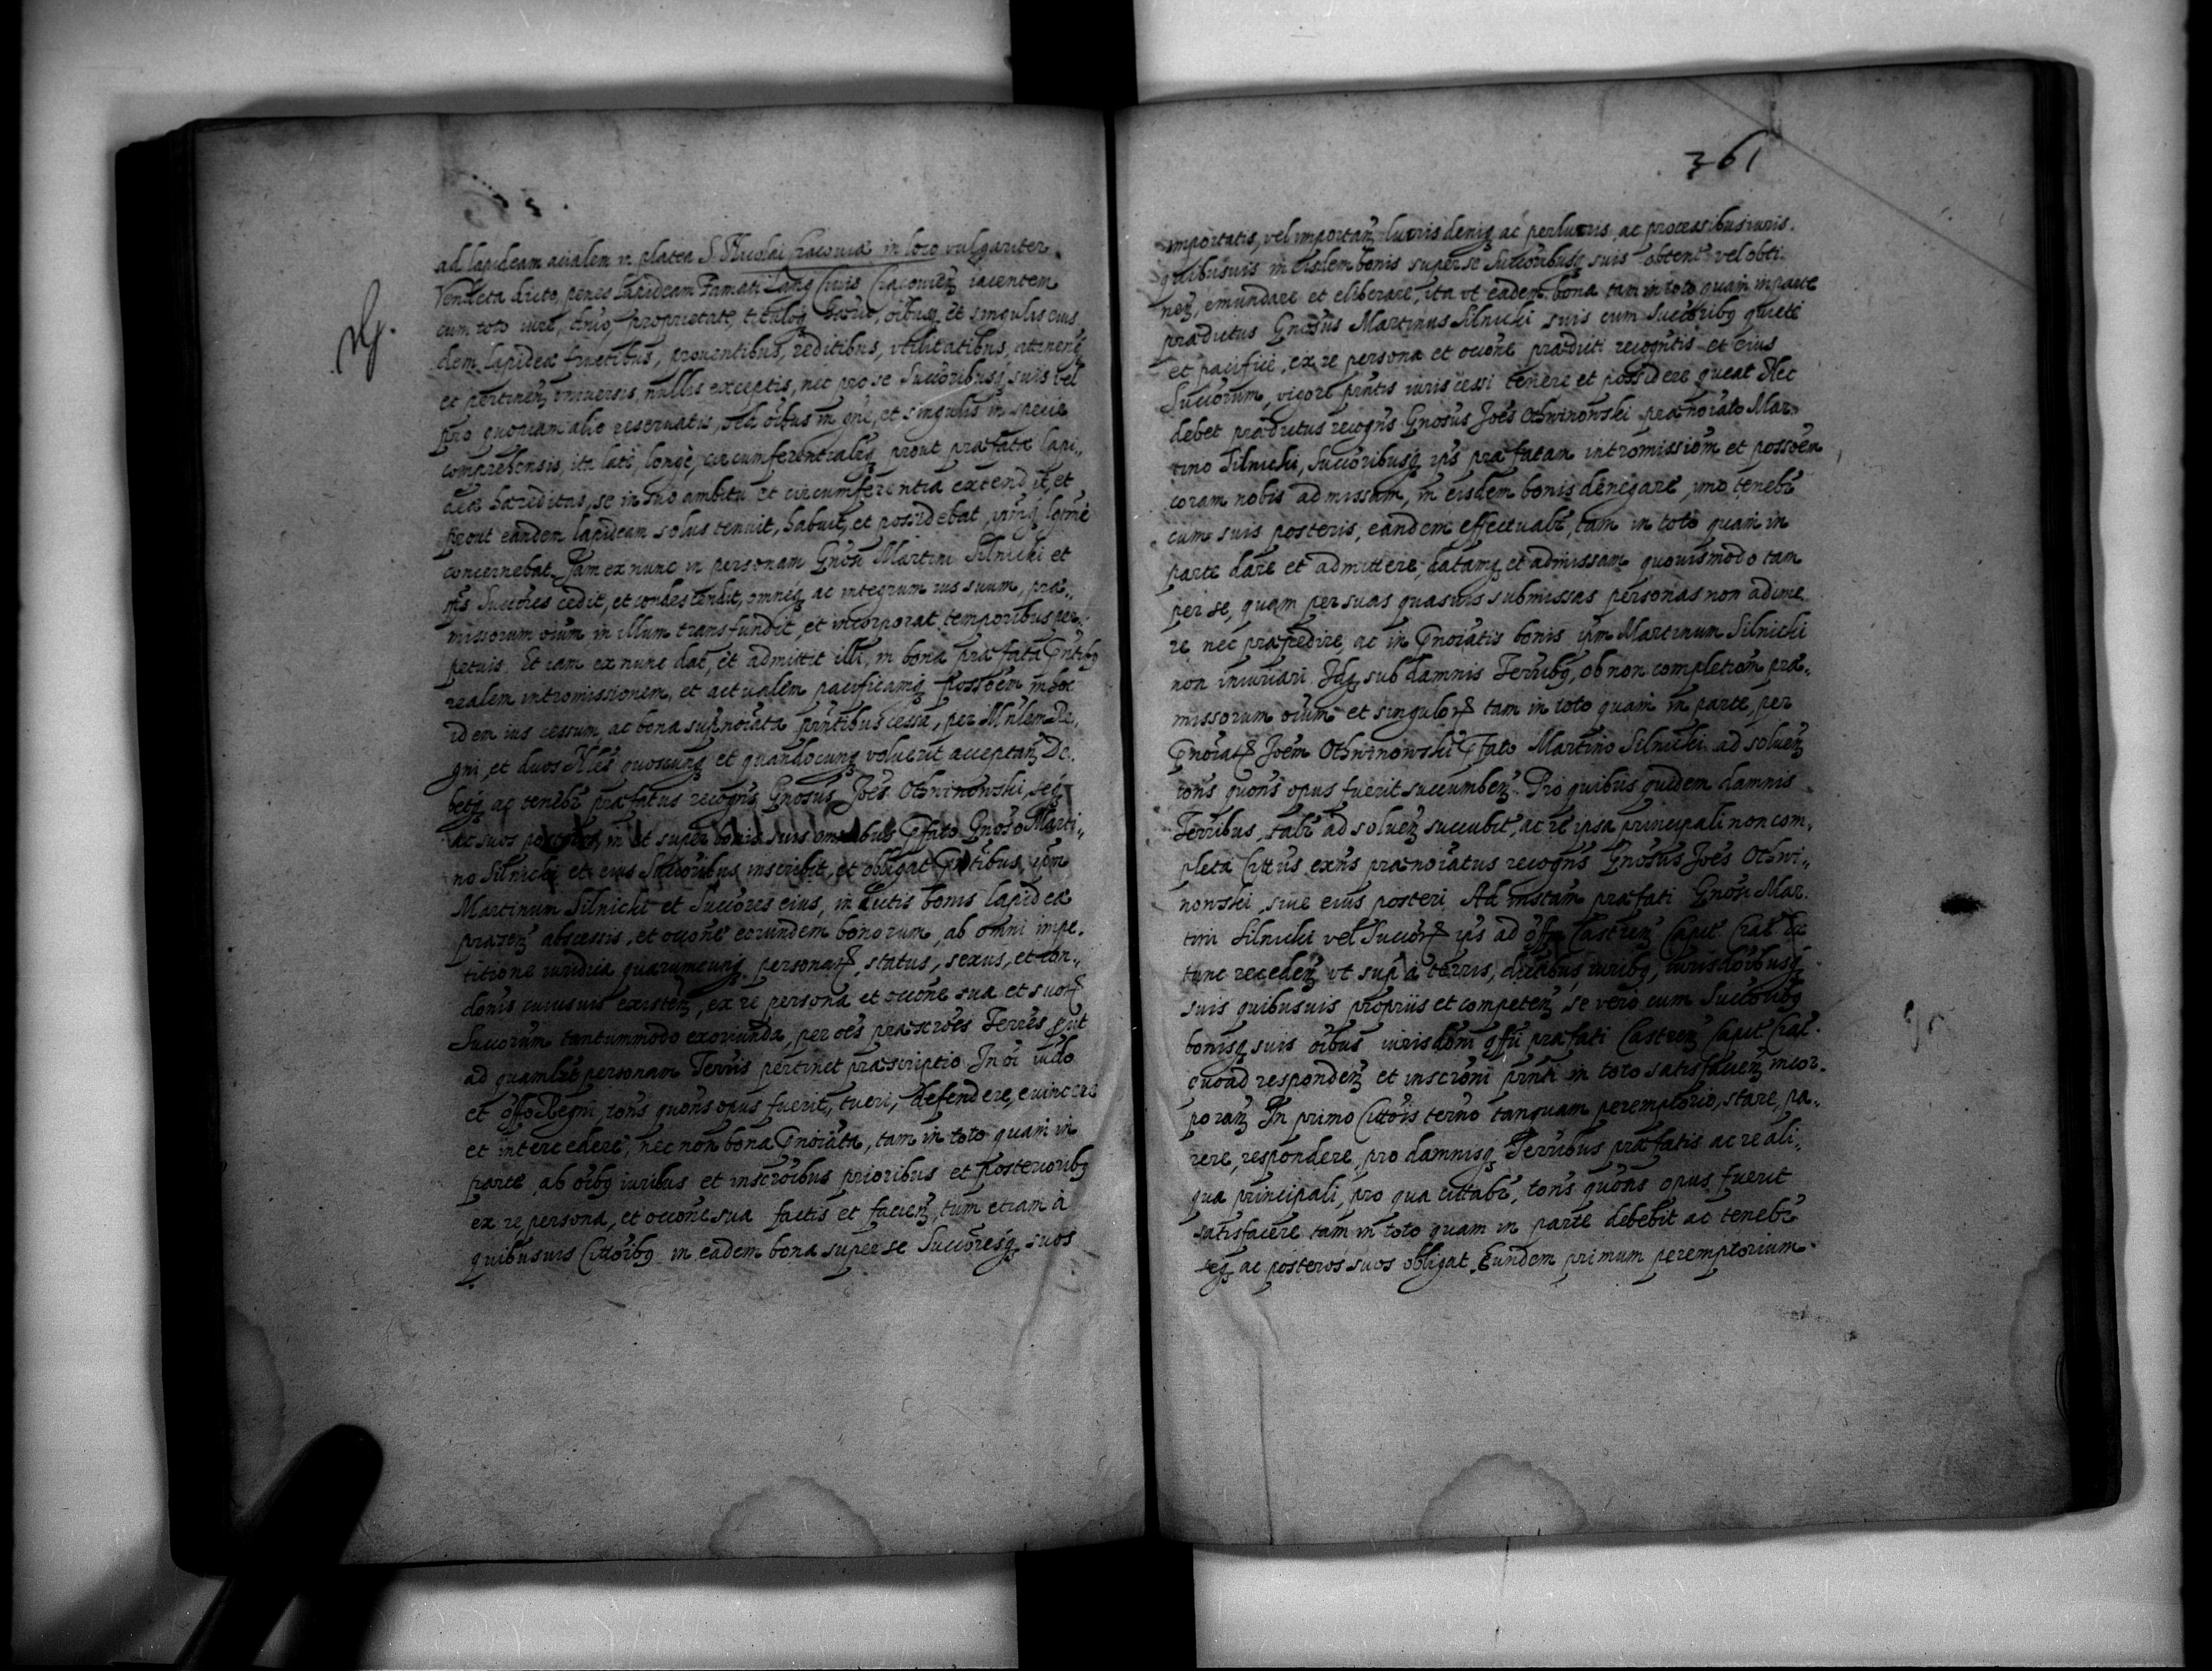 ad lapideam acialem in platea S. Nicolai Cracoviæ in loco vulgariter
Vendeta dicto, penes lapideam Famati Lang Civis Cracovien̄ iacentem
cum toto iure, dn̄io, proprietate, tituloq̃ hære͠o, oībusq̃ et singulis eius
dem lapideæ fructibus, proventibus, reditibus, vtilitatibus, attinen̄q̃
et pertinen̄ vniversis, nullis exceptis, nec pro se Succ͠oribusq̃ suis vel
pro quoviam alio reservatis, sed oībus in gn̄e, et singulis in specie
comprehensis, ita latè, longè, circumferentialēq̃ prout præfata lapi„
deæ hæreditas, se in suo ambitu et circumferentia extendit, et
prout eandem lapideam solus tenuit, habuit, et possidebat, ip͠mq̃ lg͠me
concernebat. Jam ex nunc in personam Gn͠osi Martini Silnicki et
ip͠s Succ͠res cedit, et condescendit, omnēq̃ ac integrum ius suum, præ„
missorum oīum, in illum transfundit, et incorporat temporibus per„
petuis. Et iam ex nunc dat, et admittit illi, in bona præfata p͠ntibq
realem intromissionem, et actualem pacificamq̃ poss͠oem in hoc
idem ius cessum, ac bona sup͠noīata p͠ntibus cessa, per M͠nlem Re„
gni, et duos N͠les quoscunq̃ et quandocunq̃ voluerit acceptan̄ De„
betq̃ ac tenebr̄ præfatus recogn̄s Gn͠osus Jo͠es Othwinowski, seq̃
ac suos posteros, in et super bonis suis omnibus p͠fato Gn͠oso Marti„
no Silnicki et eius Succ͠oribus inscribit, et obligat p͠ntibus, ip͠m
Martinum Silnicki et Succ͠ores eius, in dictis bonis lapidea
præsen̄ abscessis, et occ͠one eorundem bonorum, ab omni impe„
titione iuridica quarumcunq̃ personaꝝ, status, sexus, et con„
d͠onis cuiusuis existen̄, ex re persona et occ͠one sua et suoꝝ
Succ͠orum tantummodo exoriunda, per o͠es præscr͠oes Terr͠es p͠ut
ad quamlibt personam Terr͠is pertinet præscriptio. In o͠i iud͠o
et off͠o Regni, to͠ns quo͠ns opus fuerit, tueri, defendere, evincere
et intercedere, nec non bona p͠noīata, tam in toto quam in
parte, ab oībq iuribus et inscr͠oibus prioribus et posterioribq
ex re persona, et occ͠one sua factis et facien̄, tum etiam à
quibusuis Citt͠oibq in eadem bona super se Succ͠oresq̃ suos
361
importatis, vel importan̄ lucris deniq̃ ac perlucris ac processibus iuris
quibusuis in eisdem bonis super se Succ͠oribusq̃ suis obtent̄ vel obti„
nen̄, emundare et eliberare, ita vt eadem bona tam in toto quam in parte
prædictus Gn͠osus Martinus Silnicki suis cum Succ͠oribq quietè
et pacificè, ex re persona et occ͠one prædicti recogn̄tis et eius
Succ͠orum, vigore p͠ntis iuris cessi tenere et possidere queat Nec
debet prædictus recogn̄s Gn͠osus Jo͠es Othwinowski prænoīato Mar„
tino Silnicki, Succ͠oribusq̃ ip͠s præfatam intromissi͠om et poss͠oem
coram nobis admissam, in eisdem bonis denegare, imo tenebr̄
cum suis posteris, eandem effectualr̄, tam in toto quam in
parte dare et admittere, datamq̃ et admissam quouismodo tam
per se, quam per suas quasuis submissas personas non adime„
re nec præpedire, ac in p͠noīatis bonis ip͠m Martinum Silnicki
non iniuriari. Idq̃ sub damnis Terr͠ibq, ob non completi͠om præ„
missorum oīum et singuloꝝ tam in toto quam in parte, per
p͠noīatꝝ Jo͠em Othwinowski p͠fato Martino Silnicki ad soluen̄
to͠ns quo͠ns opus fuerit succumben̄. Pro quibus quidem damnis
Terr͠ibus, talr̄ ad soluen̄ succubit̄, ac re ipsa principali non com„
pleta Citt͠us ex͠ns prænoīatus recogn̄s Gn͠osus Jo͠es Othwi„
nowski, siue eius posteri Ad inst͠am præfati Gn͠osi Mar„
tini Silnicki vel Succ͠orꝝ ip͠s ad off͠m Castren̄ Capit̄ Crac̄ Ex
tunc receden̄ vt sup͠a à terris, districtibus, iuribq, iurisd͠oibusq̃
suis quibusuis propriis et competen̄, se vero cum Succ͠oribq
bonisq̃ suis oībus iurisd͠oni off͠ii præfati Castren̄ Capit̄ Crac̄.
quoad responden̄ et inscr͠oni p͠nti in toto satisfacien̄ incor„
poran̄ In primo Citt͠ois term͠o tanquam peremptorio, stare, pa„
rere, respondere, pro damnisq̃ Terr͠ibus præfatis ac re ali„
qua principali, pro qua cittabr̄, to͠ns quo͠ns opus fuerit
satisfacere tam in toto quam in parte debebit ac tenebr̄
seq̃ ac posteros suos obligat. Eundem primum peremptorium